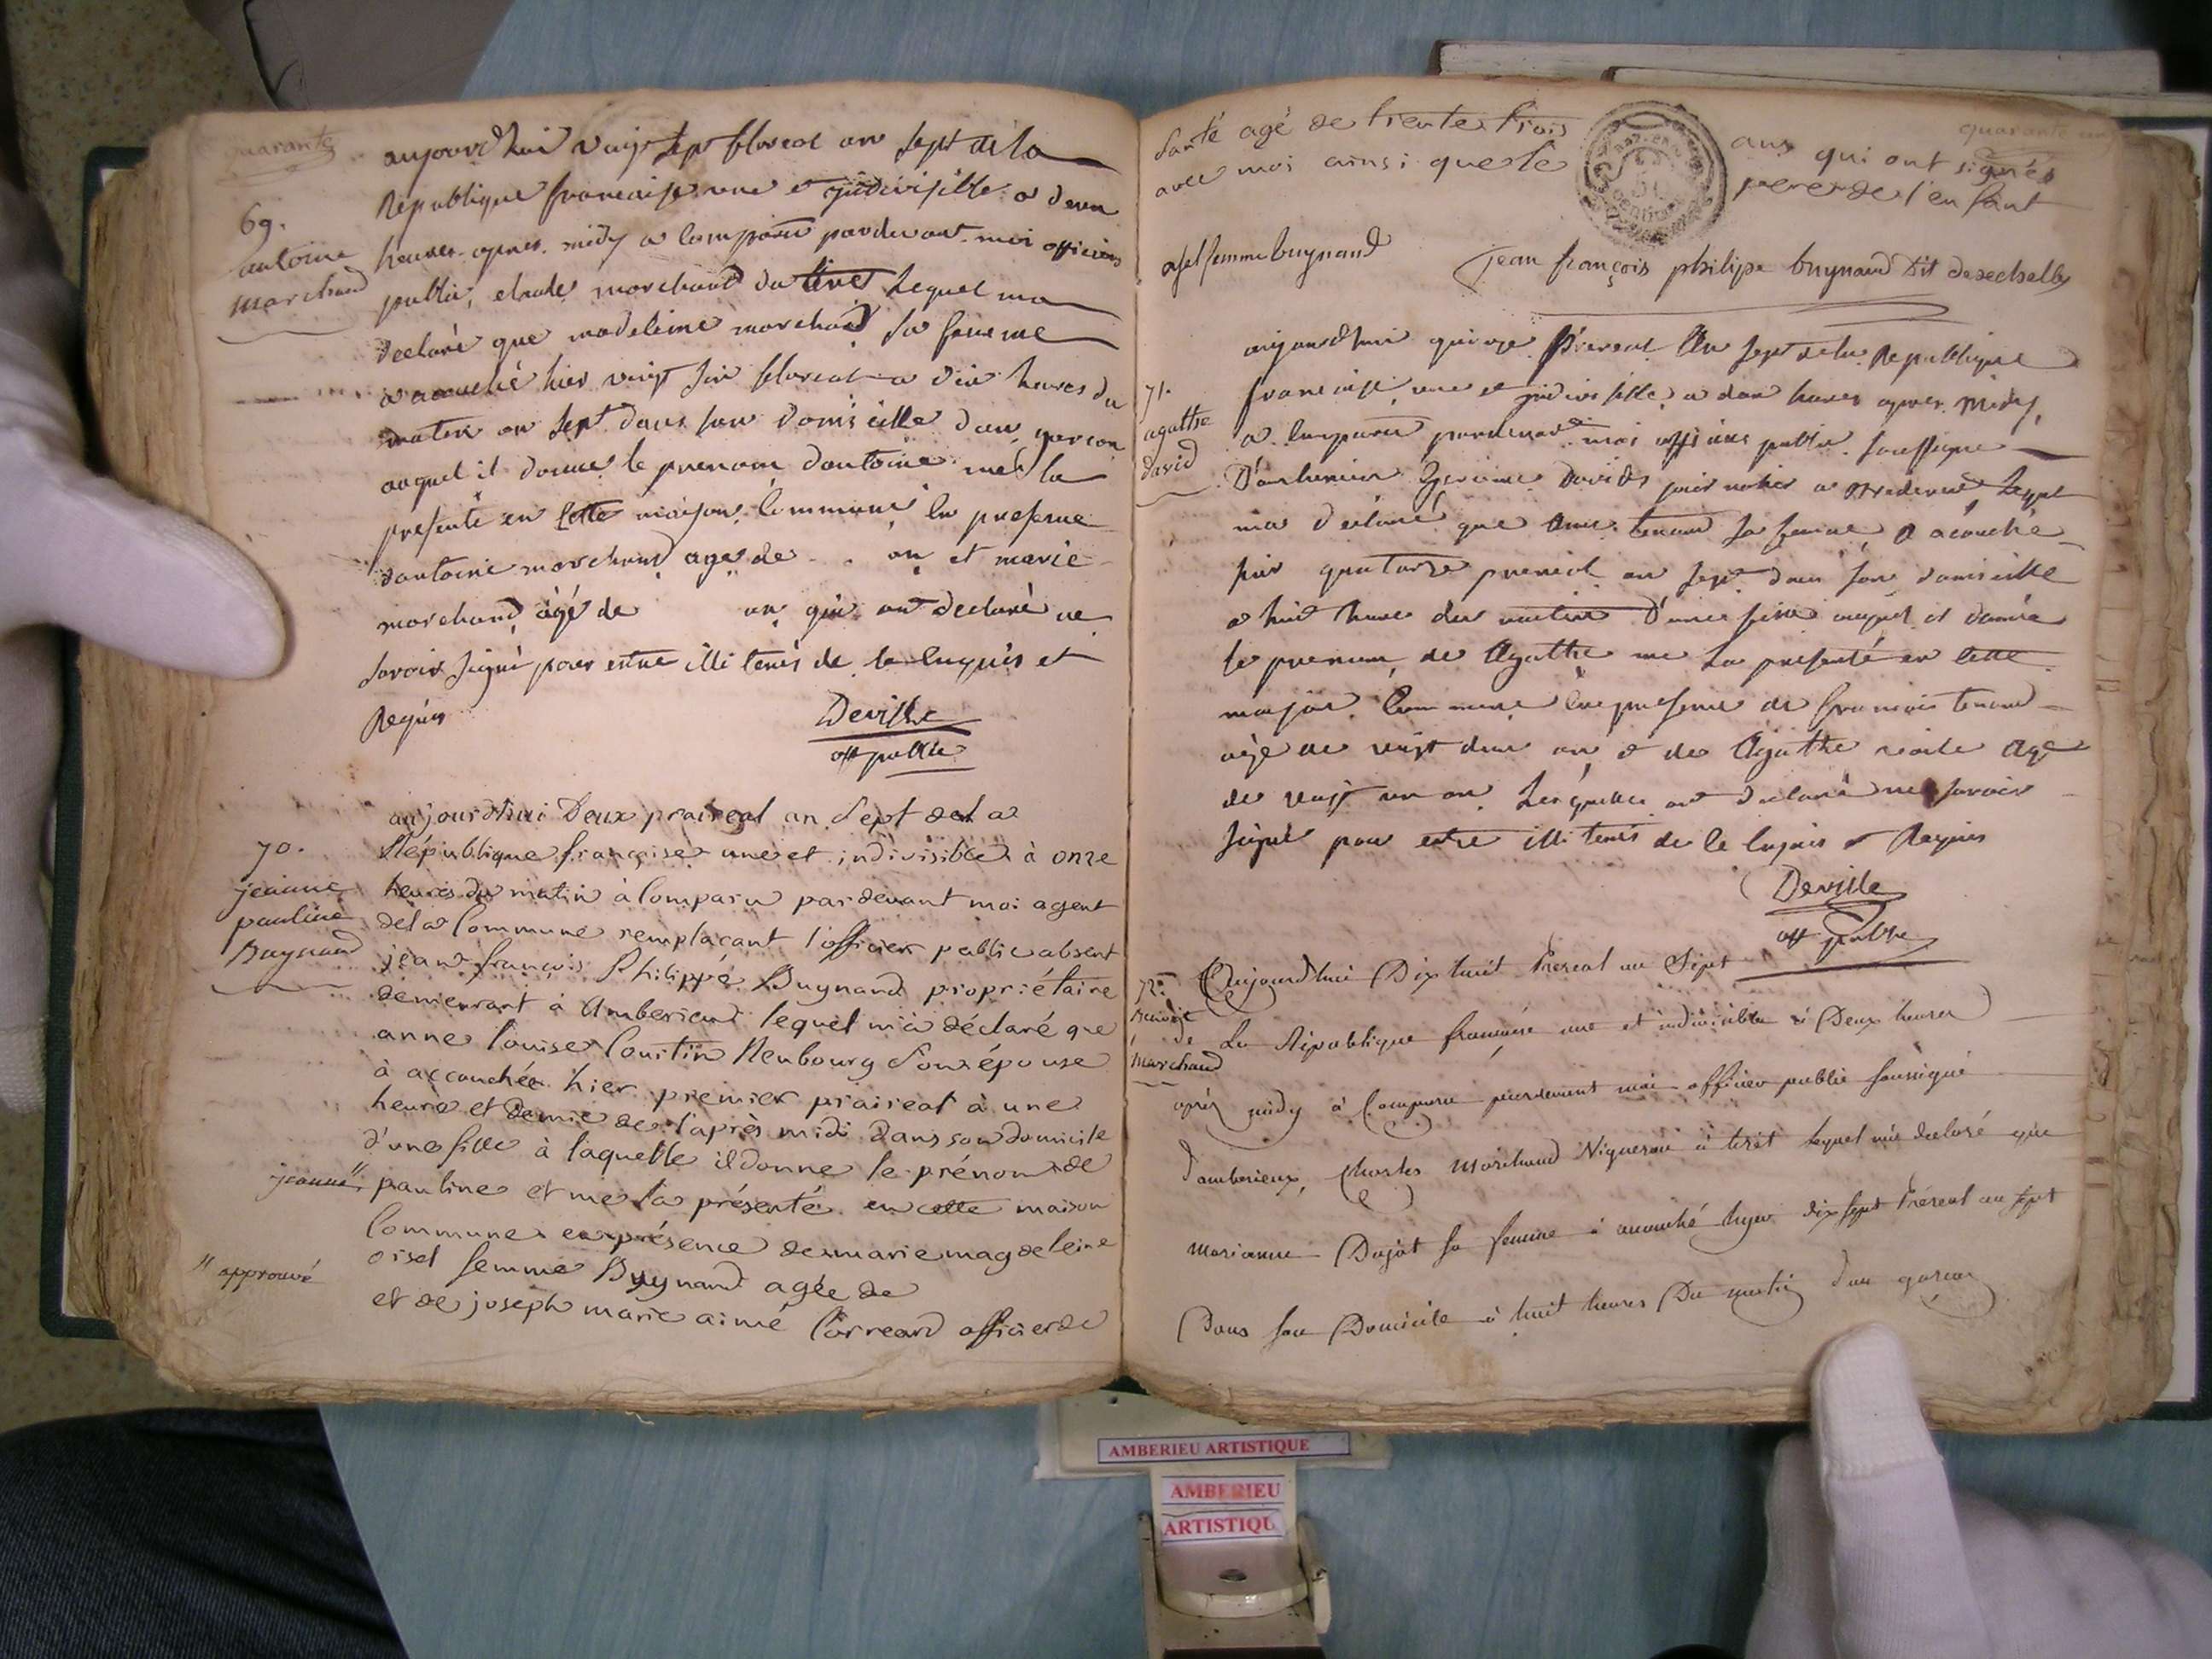 quarante
69.
antoine
marchand
aujourdhui vingt sept floreal an sept de la
Republique francaise une et indivisible a deux
heures apres midy a comparu pardevant moi officier
public, claude marchand du tiret Lequel ma
declaré que madeleine marchand sa femme
a acouché hier vingt six floreal a dix heures du
matin an sept dans son domicille d'un garcon
auquel il donne le prenom dantoine me la
presenté en cette maison commune en presence
dantoine marchand age de an et marie
marchand agé de an qui ont declaré ne
savoir signé pour estre illi terés de ce enquis et
Requis
Deville
off public
70.
jeanne
pauline
Buynand
aujourdhui Deux praireal an Sept de la
République française une et indivisible à onze
heures du matin à Comparu pardevant moi agent
de la Commune remplaçant l'officier public absent
jean françois Philippe Buynand propriétaire
demeurant à Amberieux lequel m'à déclaré que
anne louise Courtin Neubourg Son épouse
à accouchée hier premier praireal à une
heure et demie de l'après midi dans son domicile
d'une fille à laquelle il donne le prénom de
jeanne" pauline et me l'a présenté en cette maison
Commune en présence de marie magdeleine
oisel femme Buynand agée de
" approuvé
et de joseph marie aimé Carreard officier de
quarante un
santé agé de trente trois ans qui ont signés
avec moi ainsi que le pere de l'enfant
femme buynand
jean françois philipe buynand dit desechelles
71.
agathe
david
aujourdhui quinze Prereal An sept de la Republique
francaise une et indivisible a deux heures apres Midy
a comparu pardevant moi officier public soussigne
D'amberieux David journalier a Lequel
ma declaré que tenand sa femme a acouché
hier quatorze prereal an sept dans son domicille
a huit heure du matin D'une fille auquel il donne
le prenom de Agathe me La presenté en cette
maison commune en presence de francois tenand
age de vingt deux an et de Agathe age
de vingt un an Lesquelles ont declaré ne savoir
signé pour estre illi terés de ce enquis et Requis
Deville
off public
72.
Benoit
marchand
Aujourdhui Dix huit Prereal an Sept
de La République française une et indivisible à Deux heures
après midy à Comparu pardevant moi officier public soussigné
d'amberieux, Charles Marchand Vigneron à tiret lequel m'a declaré que
Marianne Dujat sa femme à acouché hyer dix sept Prereal an sept
Dans son Domicile à huit heures Du matin d'un garçon
AMBERIEU ARTISTIQUE
AMBERIEU
ARTISTIQU